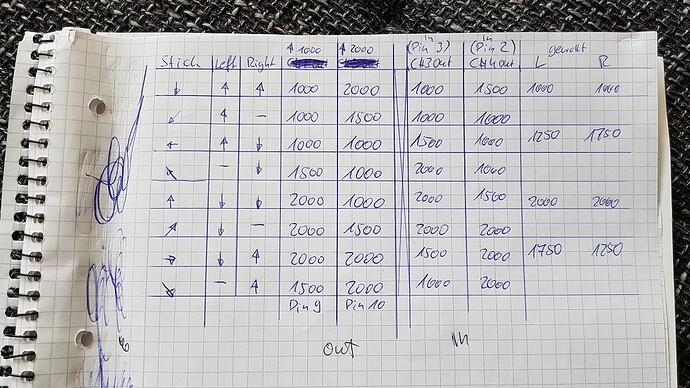 ↑ 1000 ↑ 2000 in in
(Pin 3) (Pin 2) gewollt
Stick Left Right CH3 Out CH4 Out L R
↓ ↑ ↑ 1000 2000 1000 1500 1000 1000
↙ ↑ – 1000 1500 1000 1000
← ↑ ↓ 1000 1000 1500 1000 1250 1750
↖ – ↓ 1500 1000 2000 1000
↑ ↓ ↓ 2000 1000 2000 1500 2000 2000
↗ ↓ – 2000 1500 2000 2000
→ ↓ ↑ 2000 2000 1500 2000 1750 1250
↘ – ↑ 1500 2000 1000 2000
Pin 9 Pin 10
Out In